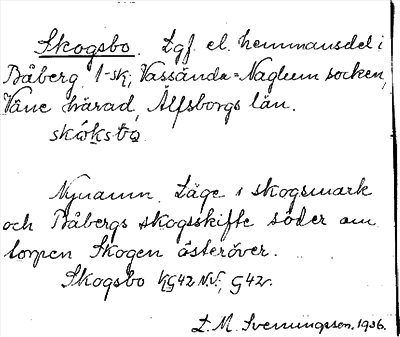 Skogsbo. Lgf. el. hemmansdel i
Båberg 1-sk; Vassända-Naglum socken,
Väne härad, Älfsborgs län.
skóksbọ
Nynamn. Läge i skogsmark
och Båbergs skogsskifte söder om
torpen Skogen österöver.
Skogsbo KG42 N.V., G42v.
L. M. Svenungsson. 1936.